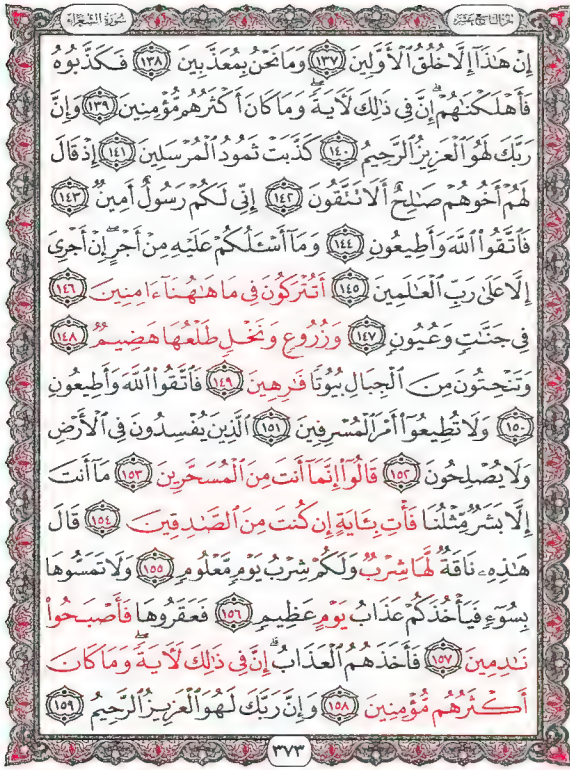 سُورَةُ الشُّعَرَاءِ الجُزءُ التَّاسِعَ عَشَرَ
إِنْ هَٰذَآ إِلَّا خُلُقُ ٱلْأَوَّلِينَ ﴿١٣٧﴾ وَمَا نَحْنُ بِمُعَذَّبِينَ ﴿١٣٨﴾ فَكَذَّبُوهُ
فَأَهْلَكْنَٰهُمْ ۗ إِنَّ فِى ذَٰلِكَ لَءَايَةً ۖ وَمَا كَانَ أَكْثَرُهُم مُّؤْمِنِينَ ﴿١٣٩﴾ وَإِنَّ
رَبَّكَ لَهُوَ ٱلْعَزِيزُ ٱلرَّحِيمُ ﴿١٤٠﴾ كَذَّبَتْ ثَمُودُ ٱلْمُرْسَلِينَ ﴿١٤١﴾ إِذْ قَالَ
لَهُمْ أَخُوهُمْ صَٰلِحٌ أَلَا تَتَّقُونَ ﴿١٤٢﴾ إِنِّى لَكُمْ رَسُولٌ أَمِينٌ ﴿١٤٣﴾
فَٱتَّقُوا۟ ٱللَّهَ وَأَطِيعُونِ ﴿١٤٤﴾ وَمَآ أَسْـَٔلُكُمْ عَلَيْهِ مِنْ أَجْرٍ ۖ إِنْ أَجْرِىَ
إِلَّا عَلَىٰ رَبِّ ٱلْعَٰلَمِينَ ﴿١٤٥﴾ أَتُتْرَكُونَ فِى مَا هَٰهُنَآ ءَامِنِينَ ﴿١٤٦﴾
فِى جَنَّٰتٍ وَعُيُونٍ ﴿١٤٧﴾ وَزُرُوعٍ وَنَخْلٍ طَلْعُهَا هَضِيمٌ ﴿١٤٨﴾
وَتَنْحِتُونَ مِنَ ٱلْجِبَالِ بُيُوتًا فَٰرِهِينَ ﴿١٤٩﴾ فَٱتَّقُوا۟ ٱللَّهَ وَأَطِيعُونِ
﴿١٥٠﴾ وَلَا تُطِيعُوٓا۟ أَمْرَ ٱلْمُسْرِفِينَ ﴿١٥١﴾ ٱلَّذِينَ يُفْسِدُونَ فِى ٱلْأَرْضِ
وَلَا يُصْلِحُونَ ﴿١٥٢﴾ قَالُوٓا۟ إِنَّمَآ أَنتَ مِنَ ٱلْمُسَحَّرِينَ ﴿١٥٣﴾ مَآ أَنتَ
إِلَّا بَشَرٌ مِّثْلُنَا فَأْتِ بِـَٔايَةٍ إِن كُنتَ مِنَ ٱلصَّٰدِقِينَ ﴿١٥٤﴾ قَالَ
هَٰذِهِۦ نَاقَةٌ لَّهَا شِرْبٌ وَلَكُمْ شِرْبُ يَوْمٍ مَّعْلُومٍ ﴿١٥٥﴾ وَلَا تَمَسُّوهَا
بِسُوٓءٍ فَيَأْخُذَكُمْ عَذَابُ يَوْمٍ عَظِيمٍ ﴿١٥٦﴾ فَعَقَرُوهَا فَأَصْبَحُوا۟
نَٰدِمِينَ ﴿١٥٧﴾ فَأَخَذَهُمُ ٱلْعَذَابُ ۗ إِنَّ فِى ذَٰلِكَ لَءَايَةً ۖ وَمَا كَانَ
أَكْثَرُهُم مُّؤْمِنِينَ ﴿١٥٨﴾ وَإِنَّ رَبَّكَ لَهُوَ ٱلْعَزِيزُ ٱلرَّحِيمُ ﴿١٥٩﴾
٣٧٣